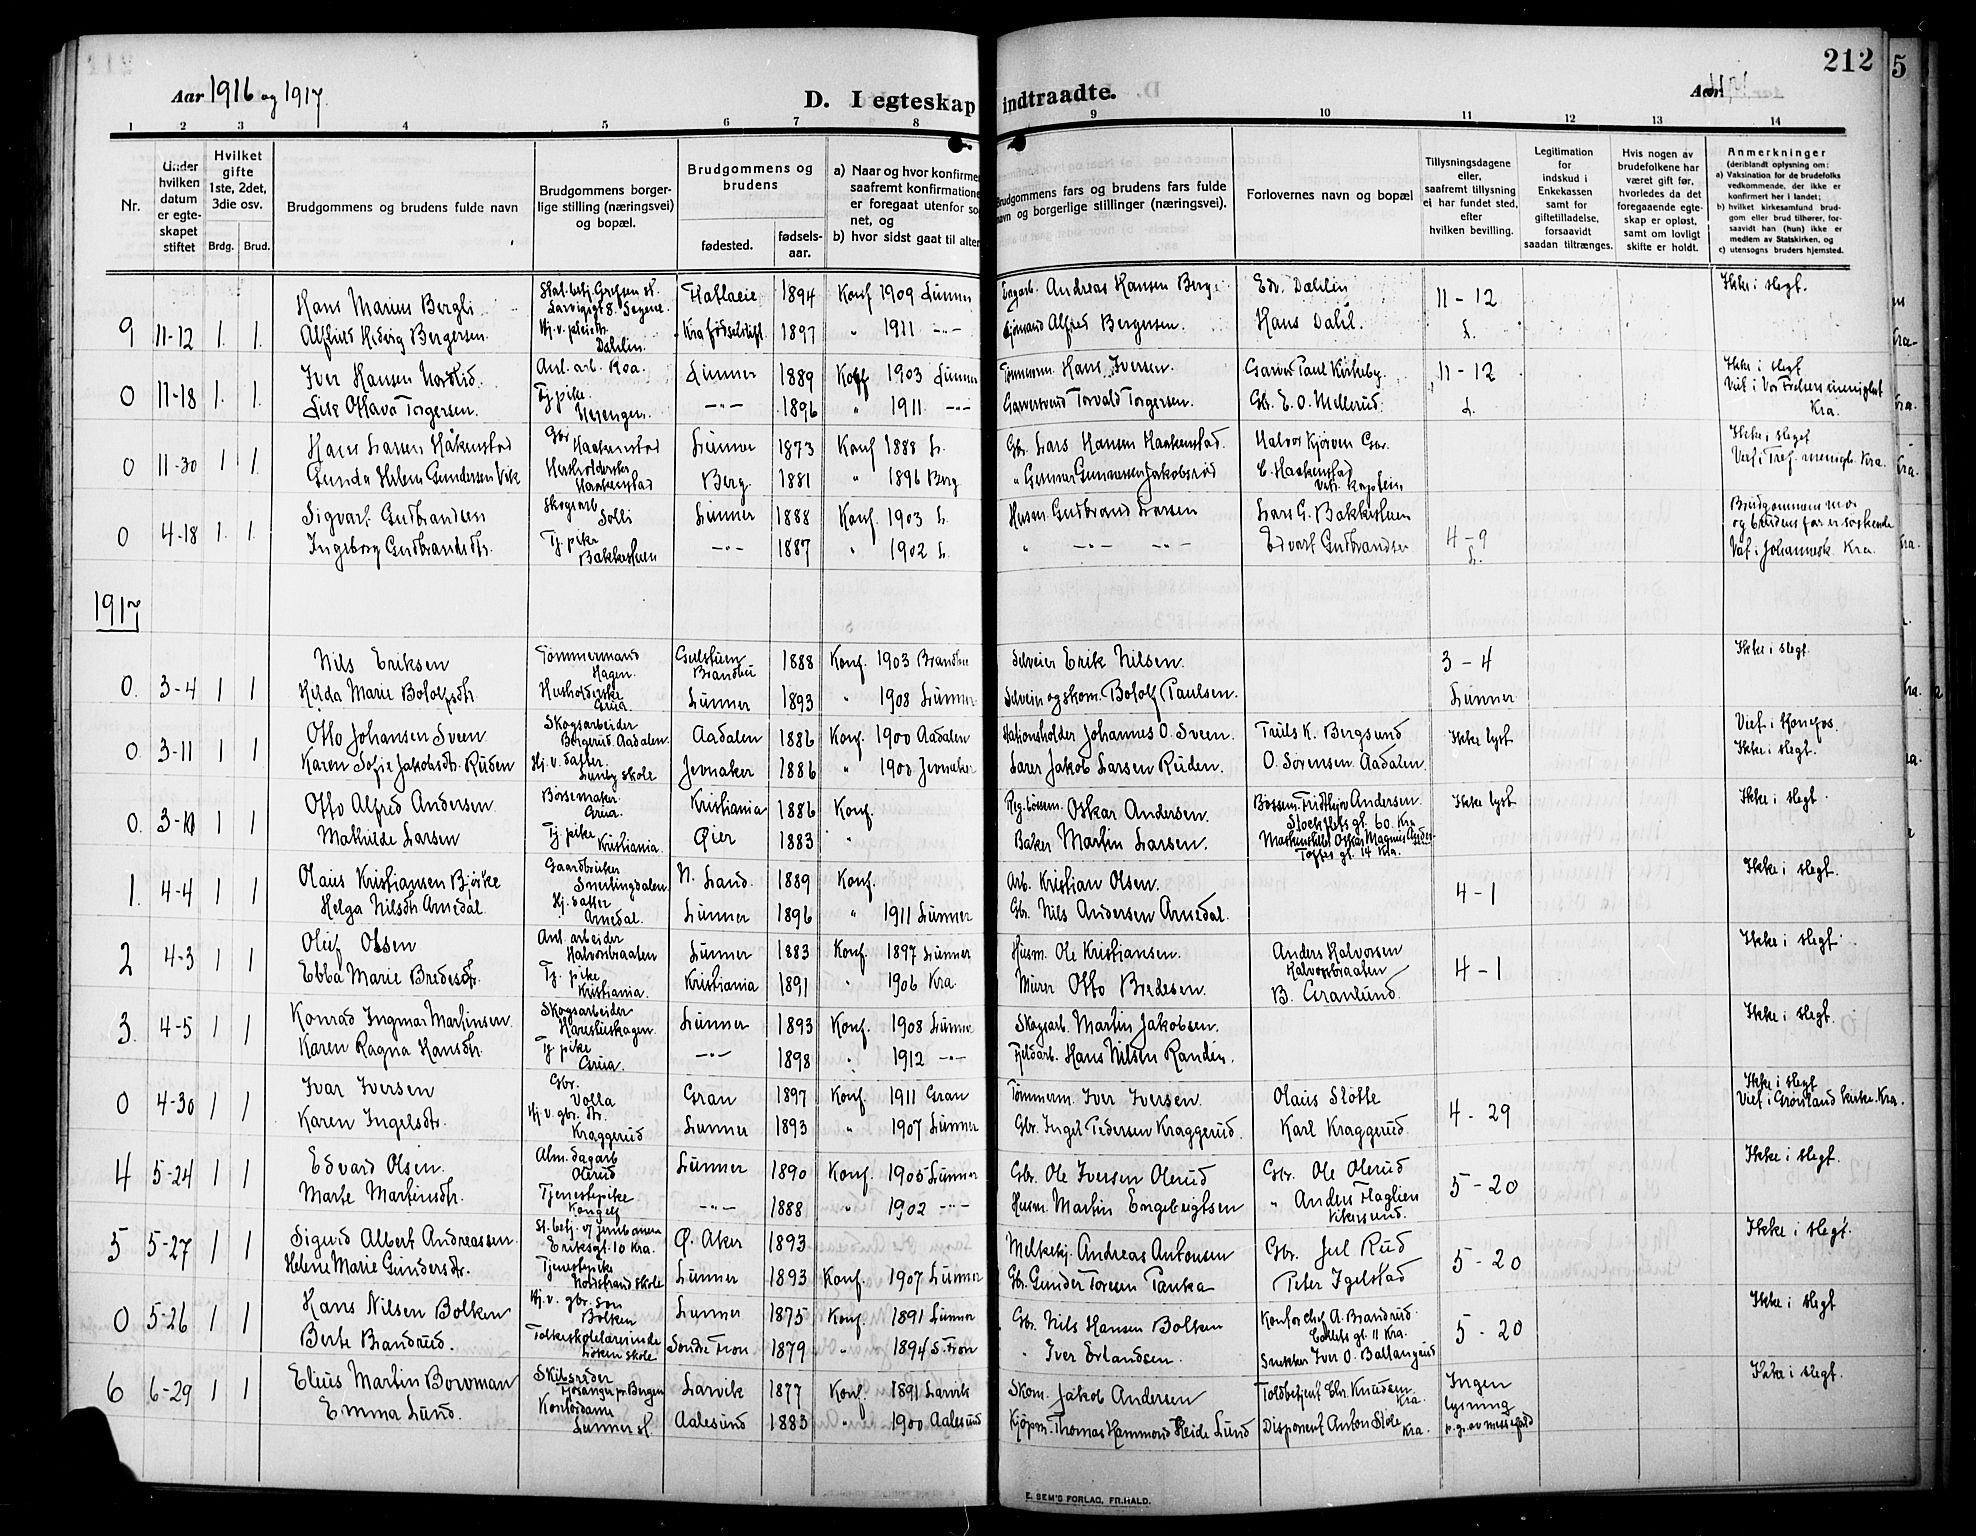 212
5
Aar 1916 og 1917.
D. I egteskap indtraadte.
Aar
1 2 3 4 5 6 7 8 9 10 11 12 13 14
Nr.
Under hvilken datum er egteskapet stiftet
Hvilket gifte 1ste, 2det, 3die osv.
Brdg. Brud.
Brudgommens og brudens fulde navn
Brudgommens borgerlige stilling (næringsvei) og bopæl.
Brudgommens og brudens
fødested.
fødselsaar.
a) Naar og hvor konfirmer
saafremt konfirmatione
er foregaat utenfor so
net, og
b) hvor sidst gaat til alter
Brudgommens fars og brudens fars fulde
navn og borgerlige stillinger (næringsvei).
Forlovernes navn og bopæl
Tillysningsdagene
eller,
saafremt tillysning
ei har fundet sted,
efter
hvilken bevilling.
Legitimation
for
indskud i
Enkekassen
samt for
giftetilladelse,
forsaavidt
saadan tiltrænges.
Hvis nogen av
brudefolkene har
været gift før,
hvorledes da det
foregaaende egteskap er opløst,
samt om lovligt
skifte er holdt.
Anmerkninger
(deriblandt oplysning om:
a) Vaksination for de brudefolks
vedkommende, der ikke er
konfirmert her i landet;
b) hvilket kirkesamfund brudgom eller brud tilhører, forsaavidt han (hun) ikke er
medlem av Statskirken, og
c) utensogns bruders hjemsted.
Hans Marius Bergli 1894 Konf 1909 Lunner Andreas Hansen Berg Edv. Dahlin 11-12 Ikke i slegt.
9 11-12 1. 1. Alfhild Hedvig Bergersen. Dahlin. Kra fødselsstift 1897 " 1911 -"- Alfred Bergersen. Hans Dahl. L.
Iver Hansen Nordlid. Anl. arb. Roa. Lunner 1889 Konf 1903 Lunner Tømmerm. Hans Iversen. Garver Paul Kirkeby. 11-12 Ikke i slegt
0 11-18 1. 1. Lise Ottava Torgersen. Tj. pike. -"- 1896 " 1911 -"- Garversvend Torvald Torgersen. Gbr. E. O. Mellerud. L. Viet i Vor Frelsers menighet Kra.
Hans Larsen Håkenstad Gbr Haakenstad Lunner 1873 Konf 1888 L. Gbr. Lars Hansen Haakenstad Halvor Kjørven Gbr. Ikke i slegt
0 11-30 1 1. Gunda Helene Gundersen Vik Husholderske Haakenstad Berg. 1881 " 1896 Berg " Gunnar Gunnarsen Jakobsrød C. Haakenstad Kaptein Viet i Tref. menigh. Kra.
Sigvart Gudbrandsen Skogsarb Solli Lunner 1888 Konf. 1903 L. Husm. Gudbrand Larsen Lars G. Bakkestuen Brudgommens mor og brudens far er søskende
0 4-18 1. 1. Ingeborg Gudbrandsdtr. Tj. pike Bakkestuen -"- 1887 " 1902 L. " -"- -"- Edvart Gudbrandsen 4-9 L. Viet i Johannesk. Kra.
1917
Nils Eriksen Tømmermand Hagen. Brandbu 1888 Konf. 1903 Brandbu Selveier Erik Nilsen. 3-4 Ikke i slegt.
0. 3-4 1 1 Hilda Marie Botolfsdtr. Husholderske Grua. Lunner 1893 " 1908 Lunner Selveier og skom. Botolf Paulsen. Lunner
Otto Johansen Sveen Skogsarbeider Bergerud, Aadalen. Aadalen 1886 Konf. 1900 Aadalen Stationsholder Johannes O. Sveen. Truls K. Bergsund Ikke lyst Viet i Hønefos.
0. 3-11 1 1 Karen Sofie Jakobsdtr. Ruden Hj. v. datter. Lunby skole Jevnaker 1886 " 1900 Jevnaker Lærer Jakob Larsen Ruden. O. Sørensen Aadalen. Ikke i slegt.
Otto Alfred Andersen Børsemaker. Grua. Kristiania 1886 Konf. Oskar Andersen. Bøssem. Fridthjov Andersen. Stockflets gt. 60. Kra Ikke lyst Ikke i slegt.
0. 3-10 1 1 Mathilde Larsen Tj. pike Kristiania. Øier 1883 " Baker Martin Larsen. Oskar Magnus Toftes gt. 14 Kra.
Olaus Kristiansen Bjørke Gaardbruker Snertingdalen. N. Land. 1889 Konf. Arb. Kristian Olsen. Ikke i slegt.
1. 4-4 1 1 Helga Nilsdtr Arnedal Hj. datter Arnedal. Lunner 1896 " 1911 Lunner Gbr. Nils Andersen Arnedal. 4-1
Oluf Olsen Anl. arbeider Halvorsbraaten Lunner 1883 Konf. 1897 Lunner Husm. Ole Kristiansen. Anders Halvorsen Halvorsbraaten Ikke i slegt.
2 4-3 1 1 Ebba Marie Bredesdtr. Tj. pike Kristiania. Kristiania 1891 " 1906 Kra. Murer Otto Bredesen. B. Granlund. 4-1
Konrad Ingmar Martinsen. Skogsarbeider Harestuskagen. Lunner 1893 Konf. 1908 Lunner Skogsarb. Martin Jakobsen. Ikke i slegt.
3. 4-5 1 1 Karen Ragna Hansdtr. Tj. pike Grua. -"- 1898 " 1912 -"- Fjeldarb. Hans Nilsen Randen.
Ivar Iversen Gbr. Volla Gran 1897 Konf. 1911 Gran Tømmerm. Iver Iversen. Olaus Slotte Ikke i slegt
0 4-30 1 1 Karen Ingelsdtr. Hj. v. gbr. dtr. Kraggerud Lunner 1893 " 1907 Lunner Gbr. Ingel Pedersen Kraggerud. Karl Kraggerud. 4-29 Viet i Grønland kirke. Kra.
Edvard Olsen. Alm. dagarb Olerud Lunner 1890 Konf. 1905 Lunner Gbr. Ole Iversen Olerud Gbr. Ole Olerud Ikke i slegt.
4 5-24 1 1 Marte Martinsdtr. Tjenestepike -"- 1888 " 1902 -"- Husm. Martin Engebrigtsen " Anders Haglien Vikersund. 5-20
Sigurd Albert Andreassen. St. betj. v/ jernbanen Eriksgt. 10 Kra. Ø. Aker 1893 Melkekj. Andreas Antonsen Gbr. Jul Rud Ikke i slegt.
5 5-27 1 1 Helene Marie Gundersdtr. Tjenestepike Nordstrand skole Lunner 1893 Konf. 1907 Lunner Gbr. Gunder Toresen Tanka Peter Igelstad 5-20
Hans Nilsen Bolken Hj. v. gbr. søn Bolken Lunner 1875 Konf. 1891 Lunner Gbr. Nils Hansen Bolken Kontorchef A. Brandrud. gt. 11 Kra. Ikke i slegt
0 5-26 1 1 Berte Brandrud. Folkeskolelærerinde skole Søndre Fron 1879 " 1894 S. Fron " Iver Erlandsen. Snekker Iver O. Ballangrud 5-20
Elius Martin Bowman Skibsreder Fjøsanger pr Bergen Larvik 1877 Konf. 1891 Larvik Skom. Jakob Andersen Toldbetjent Chr. Knudsen Kra. Ingen lysning Ikke i slegt.
6 6-29 1 1 Emma Lund. Kontordame Lunner st. Aalesund 1883 " 1900 Aalesund Kjøpm. Thomas Hammond Heide Lund Disponent Anton Kra.
E. SEM'S FORLAG, FR.HALD.